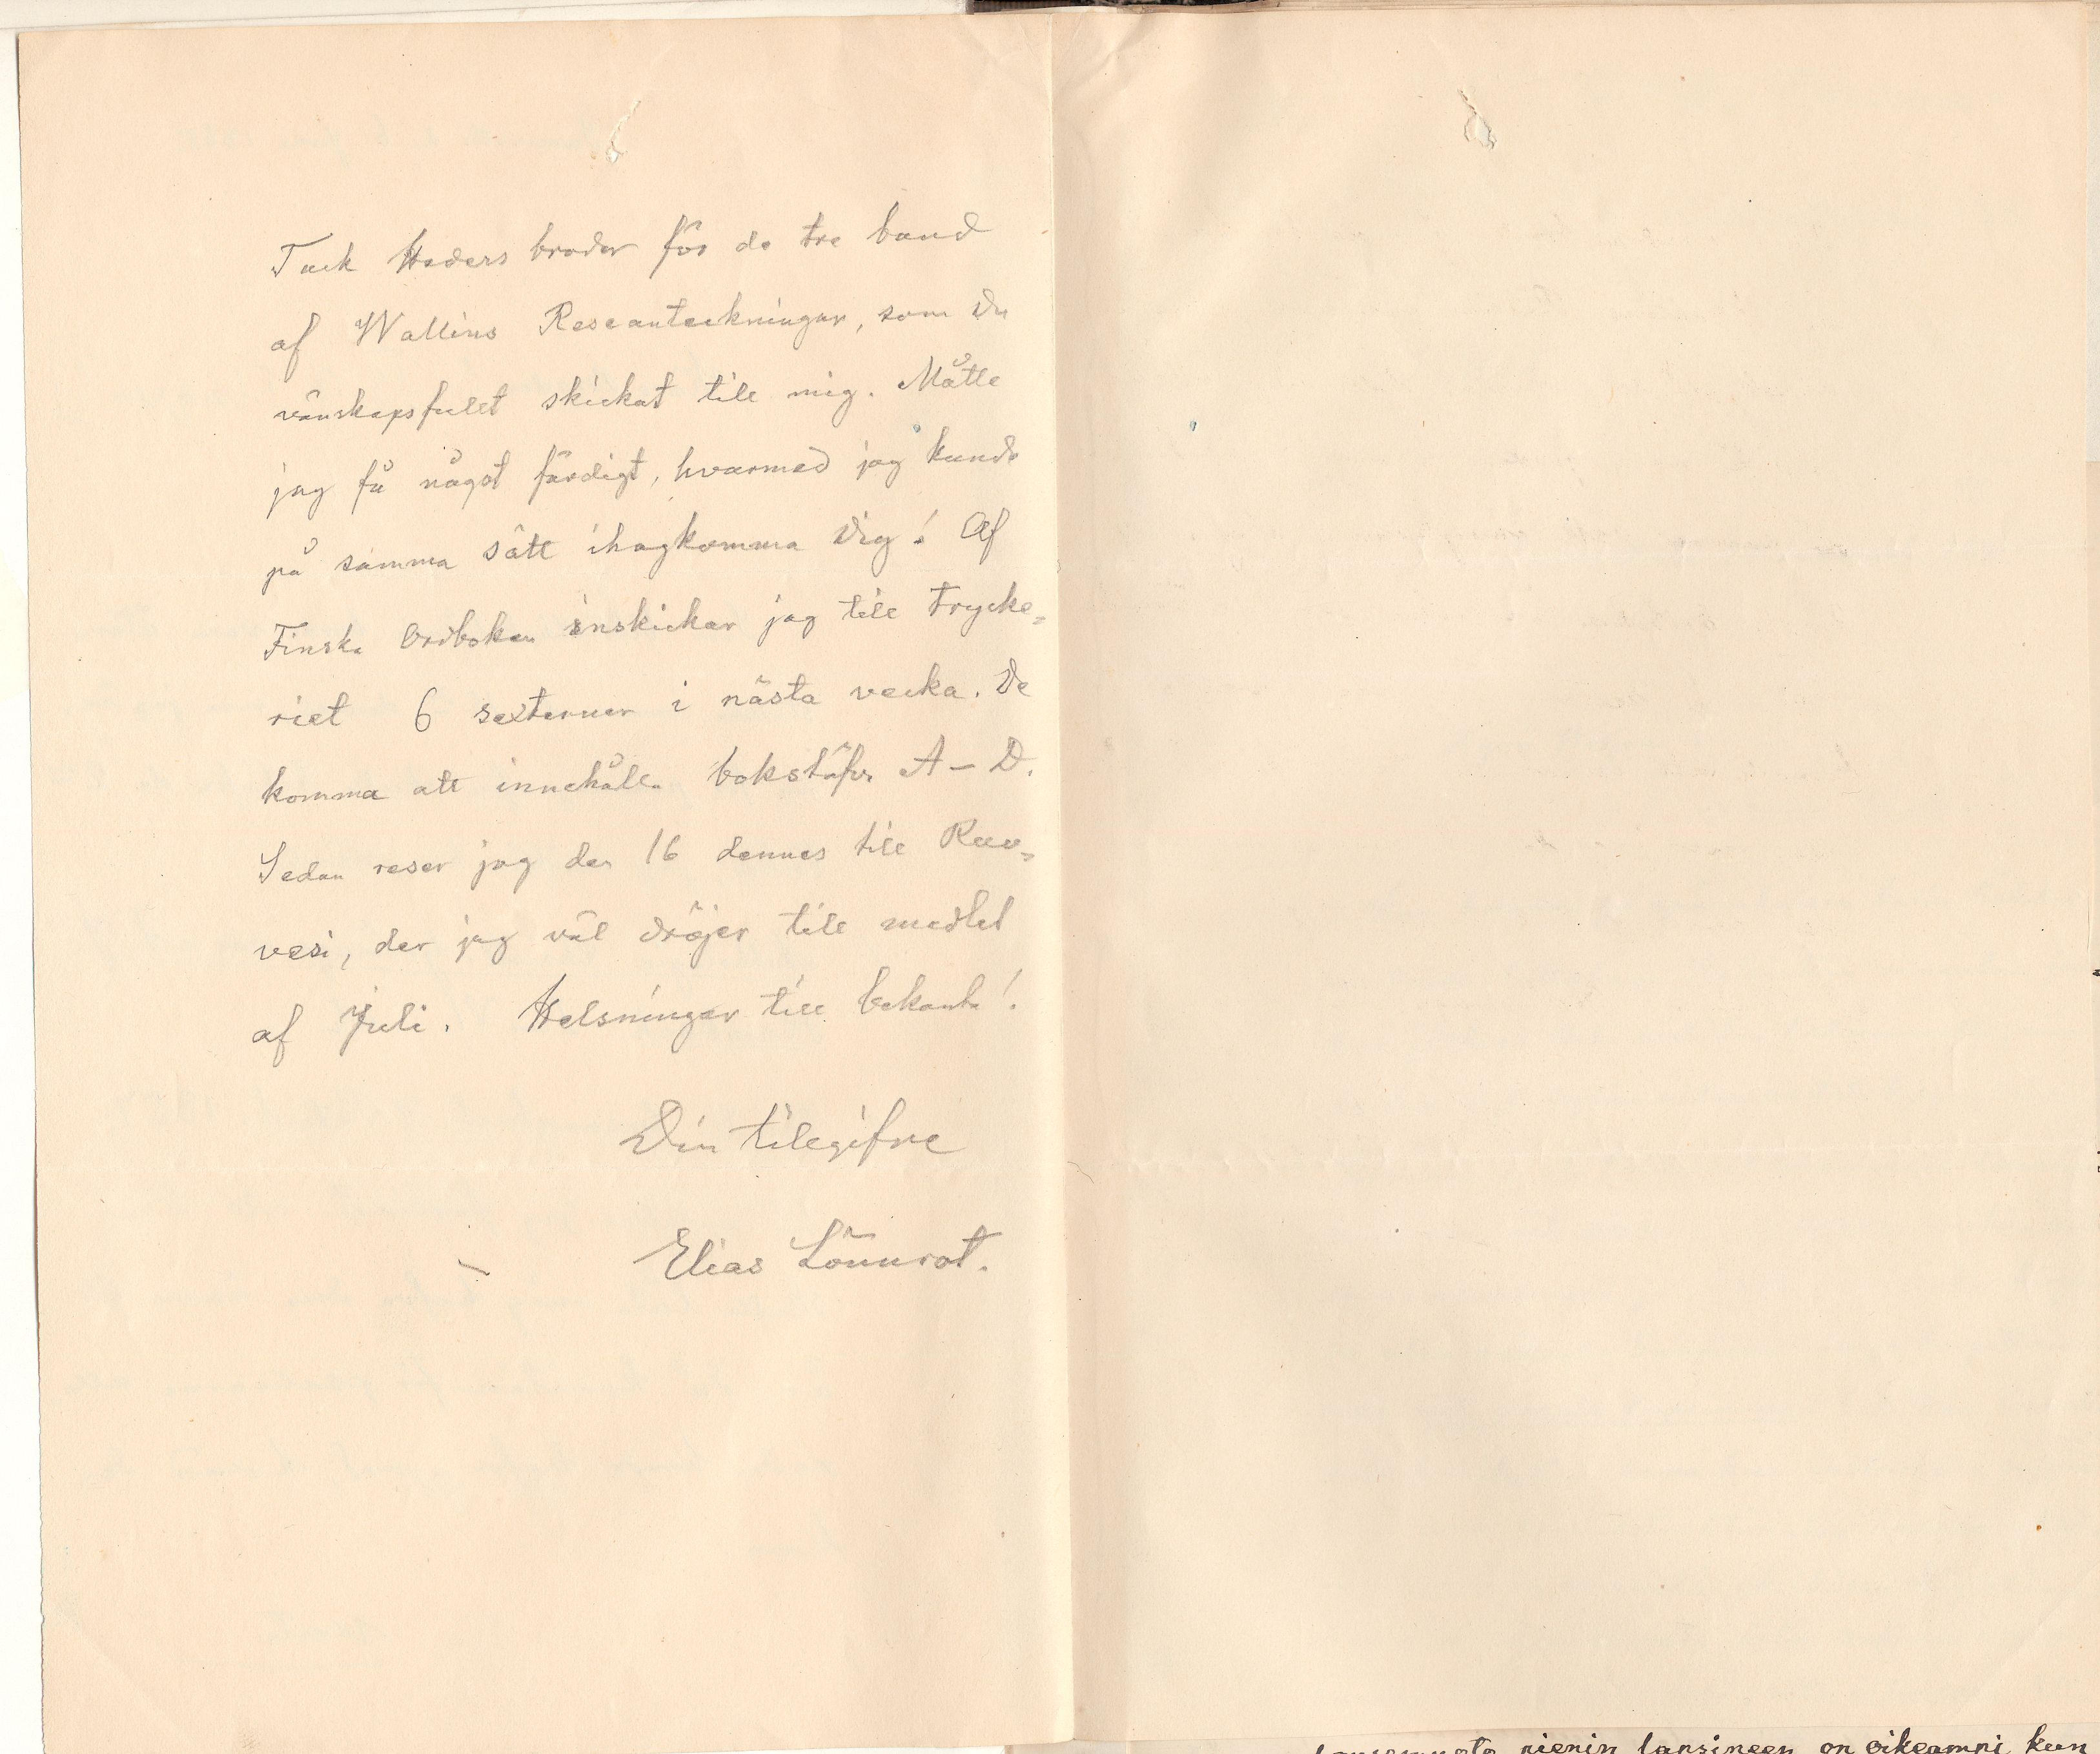 Tack Heders broder för de tre band
af Wallins Reseanteckningar, som Du
vänskapsfullt skickat till mig. Måtte
jag få något färdigt, hvarmed jag kunde
på samma sätt ihogkomma Dig! Af
Finska Ordboken inskickar jag till trycke=
riet 6 sexterner i nästa vecka. De
komma att innehålla bokstäfver A – D.
Sedan reser jag den 16 dennes till Reo=
vesi, der jag väl dröjer till medlet
af Juli. Helsningar till bekanta!
Din tillgifne
Elias Lönnrot.
pienin lapsineen on oikeampi kun